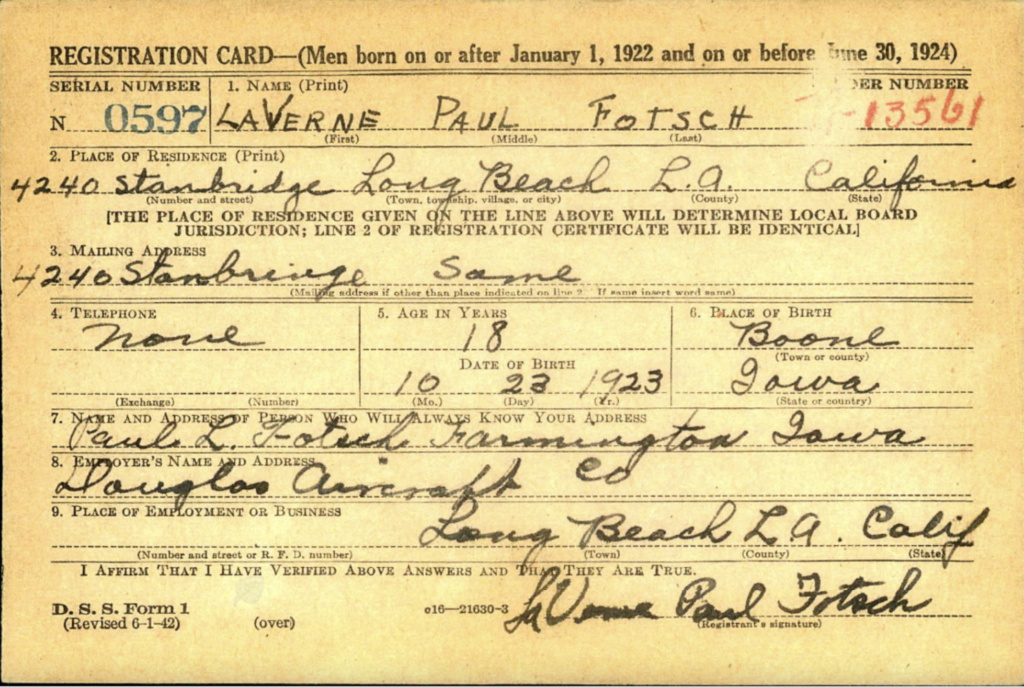 REGISTRATION CARD—(Men born on or after January 1, 1922 and on or before June 30, 1924)
SERIAL NUMBER 1. NAME (Print) ER NUMBER
N 0597 LAVERNE PAUL FOTSCH 13561
(First) (Middle) (Last)
2. PLACE OF RESIDENCE (Print)
4240 Stanbridge Long Beach L.A. California
(Number and street) (Town, township, village, or city) (County) (State)
[THE PLACE OF RESIDENCE GIVEN ON THE LINE ABOVE WILL DETERMINE LOCAL BOARD
JURISDICTION; LINE 2 OF REGISTRATION CERTIFICATE WILL BE IDENTICAL]
3. MAILING ADDRESS
4240 Stanbringe Same
(Mailing address if other than place indicated on line 2. If same insert word same)
4. TELEPHONE 5. AGE IN YEARS 6. PLACE OF BIRTH
None 18 Boone
DATE OF BIRTH (Town or county)
10 23 1923 Iowa
(Exchange) (Number) (Mo.) (Day) (Yr.) (State or country)
7. NAME AND ADDRESS OF PERSON WHO WILL ALWAYS KNOW YOUR ADDRESS
Paul L. Fotsch Farmington Iowa
8. EMPLOYER'S NAME AND ADDRESS
Douglas Aircraft Co
9. PLACE OF EMPLOYMENT OR BUSINESS
Long Beach L.A. Calif
(Number and street or R. F. D. number) (Town) (County) (State)
I AFFIRM THAT I HAVE VERIFIED ABOVE ANSWERS AND THAT THEY ARE TRUE.
D. S. S. Form 1 c16—21630-3 LaVerne Paul Fotsch
(Revised 6-1-42) (over) (Registrant's signature)